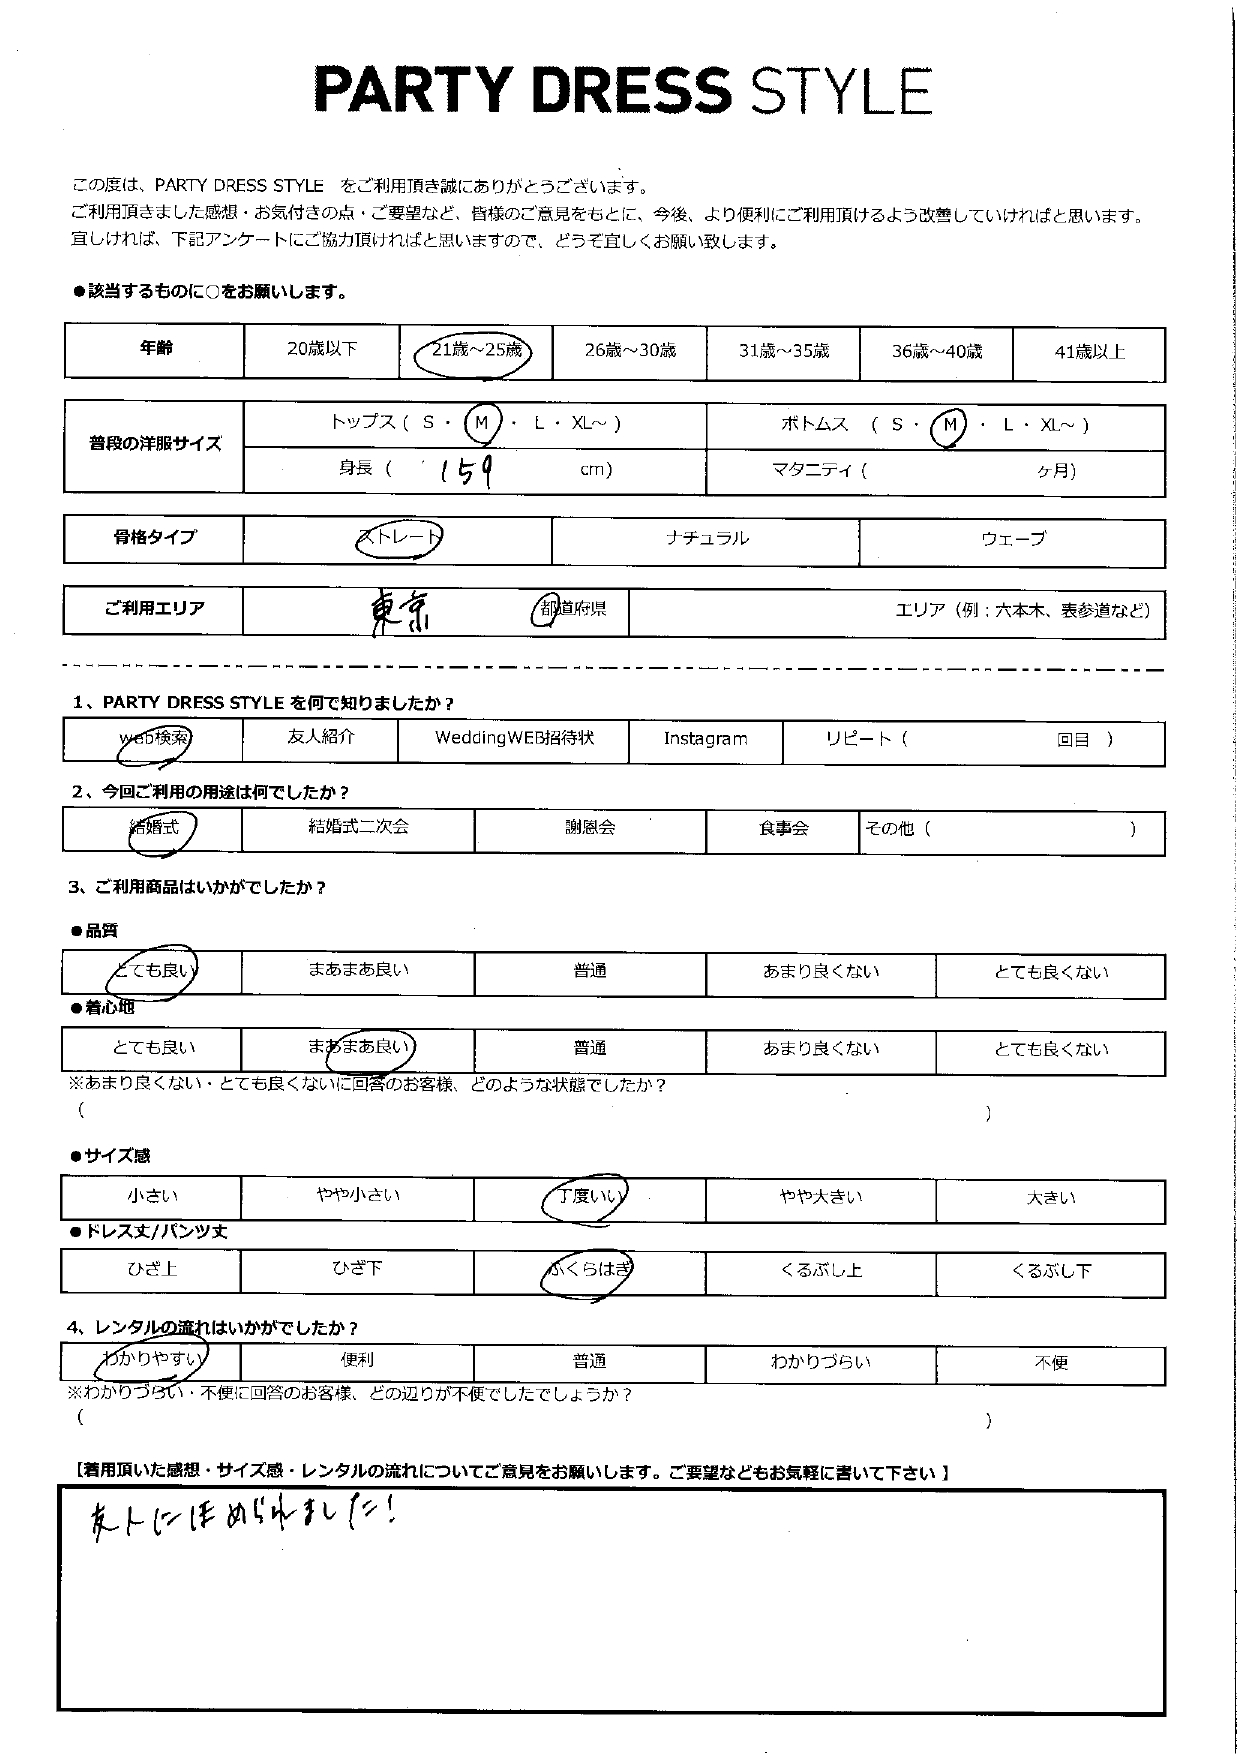 PARTY DRESS STYLE
この度は、PARTY DRESS STYLE をご利用頂き誠にありがとうございます。
ご利用頂きました感想・お気付きの点・ご要望など、皆様のご意見をもとに、今後、より便利にご利用頂けるよう改善していければと思います。
宜しければ、下記アンケートにご協力頂ければと思いますので、どうぞ宜しくお願い致します。
●該当するものに○をお願いします。
年齢 20歳以下 21歳～25歳 26歳～30歳 31歳～35歳 36歳～40歳 41歳以上
普段の洋服サイズ トップス ( S ・ M ・ L ・ XL～ ) ボトムス ( S ・ M ・ L ・ XL～ )
身長 ( 159 cm) マタニティ ( ヶ月)
骨格タイプ ストレート ナチュラル ウェーブ
ご利用エリア 東京 都道府県 エリア（例：六本木、表参道など）
1、PARTY DRESS STYLE を何で知りましたか？
web検索 友人紹介 WeddingWEB招待状 Instagram リピート ( 回目 )
2、今回ご利用の用途は何でしたか？
結婚式 結婚式二次会 謝恩会 食事会 その他 ( )
3、ご利用商品はいかがでしたか？
●品質
とても良い まあまあ良い 普通 あまり良くない とても良くない
●着心地
とても良い まあまあ良い 普通 あまり良くない とても良くない
※あまり良くない・とても良くないに回答のお客様、どのような状態でしたか？
( )
●サイズ感
小さい やや小さい 丁度いい やや大きい 大きい
●ドレス丈/パンツ丈
ひざ上 ひざ下 ふくらはぎ くるぶし上 くるぶし下
4、レンタルの流れはいかがでしたか？
わかりやすい 便利 普通 わかりづらい 不便
※わかりづらい・不便に回答のお客様、どの辺りが不便でしたでしょうか？
( )
【着用頂いた感想・サイズ感・レンタルの流れについてご意見をお願いします。ご要望などもお気軽に書いて下さい 】
友人にほめられました！